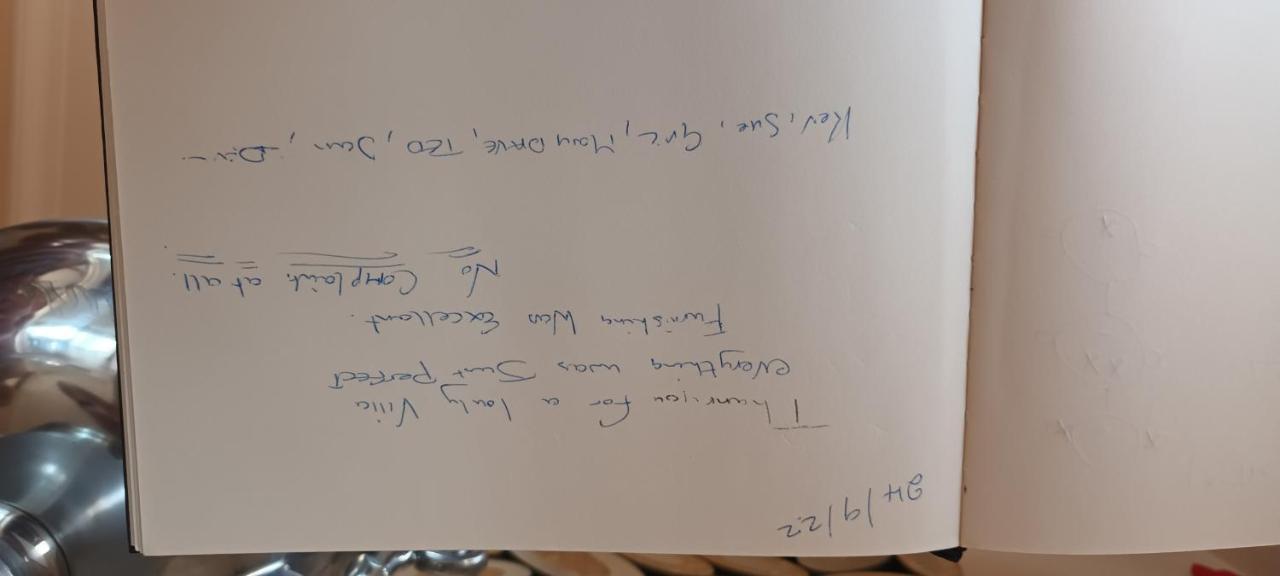 24/9/22
Thankyou for a lovly Villa
everything was Just perfect
Furnishing Was Excellant.
No Complaint at all.
Kev, Sue, Mary DAVE, TED, Jean,